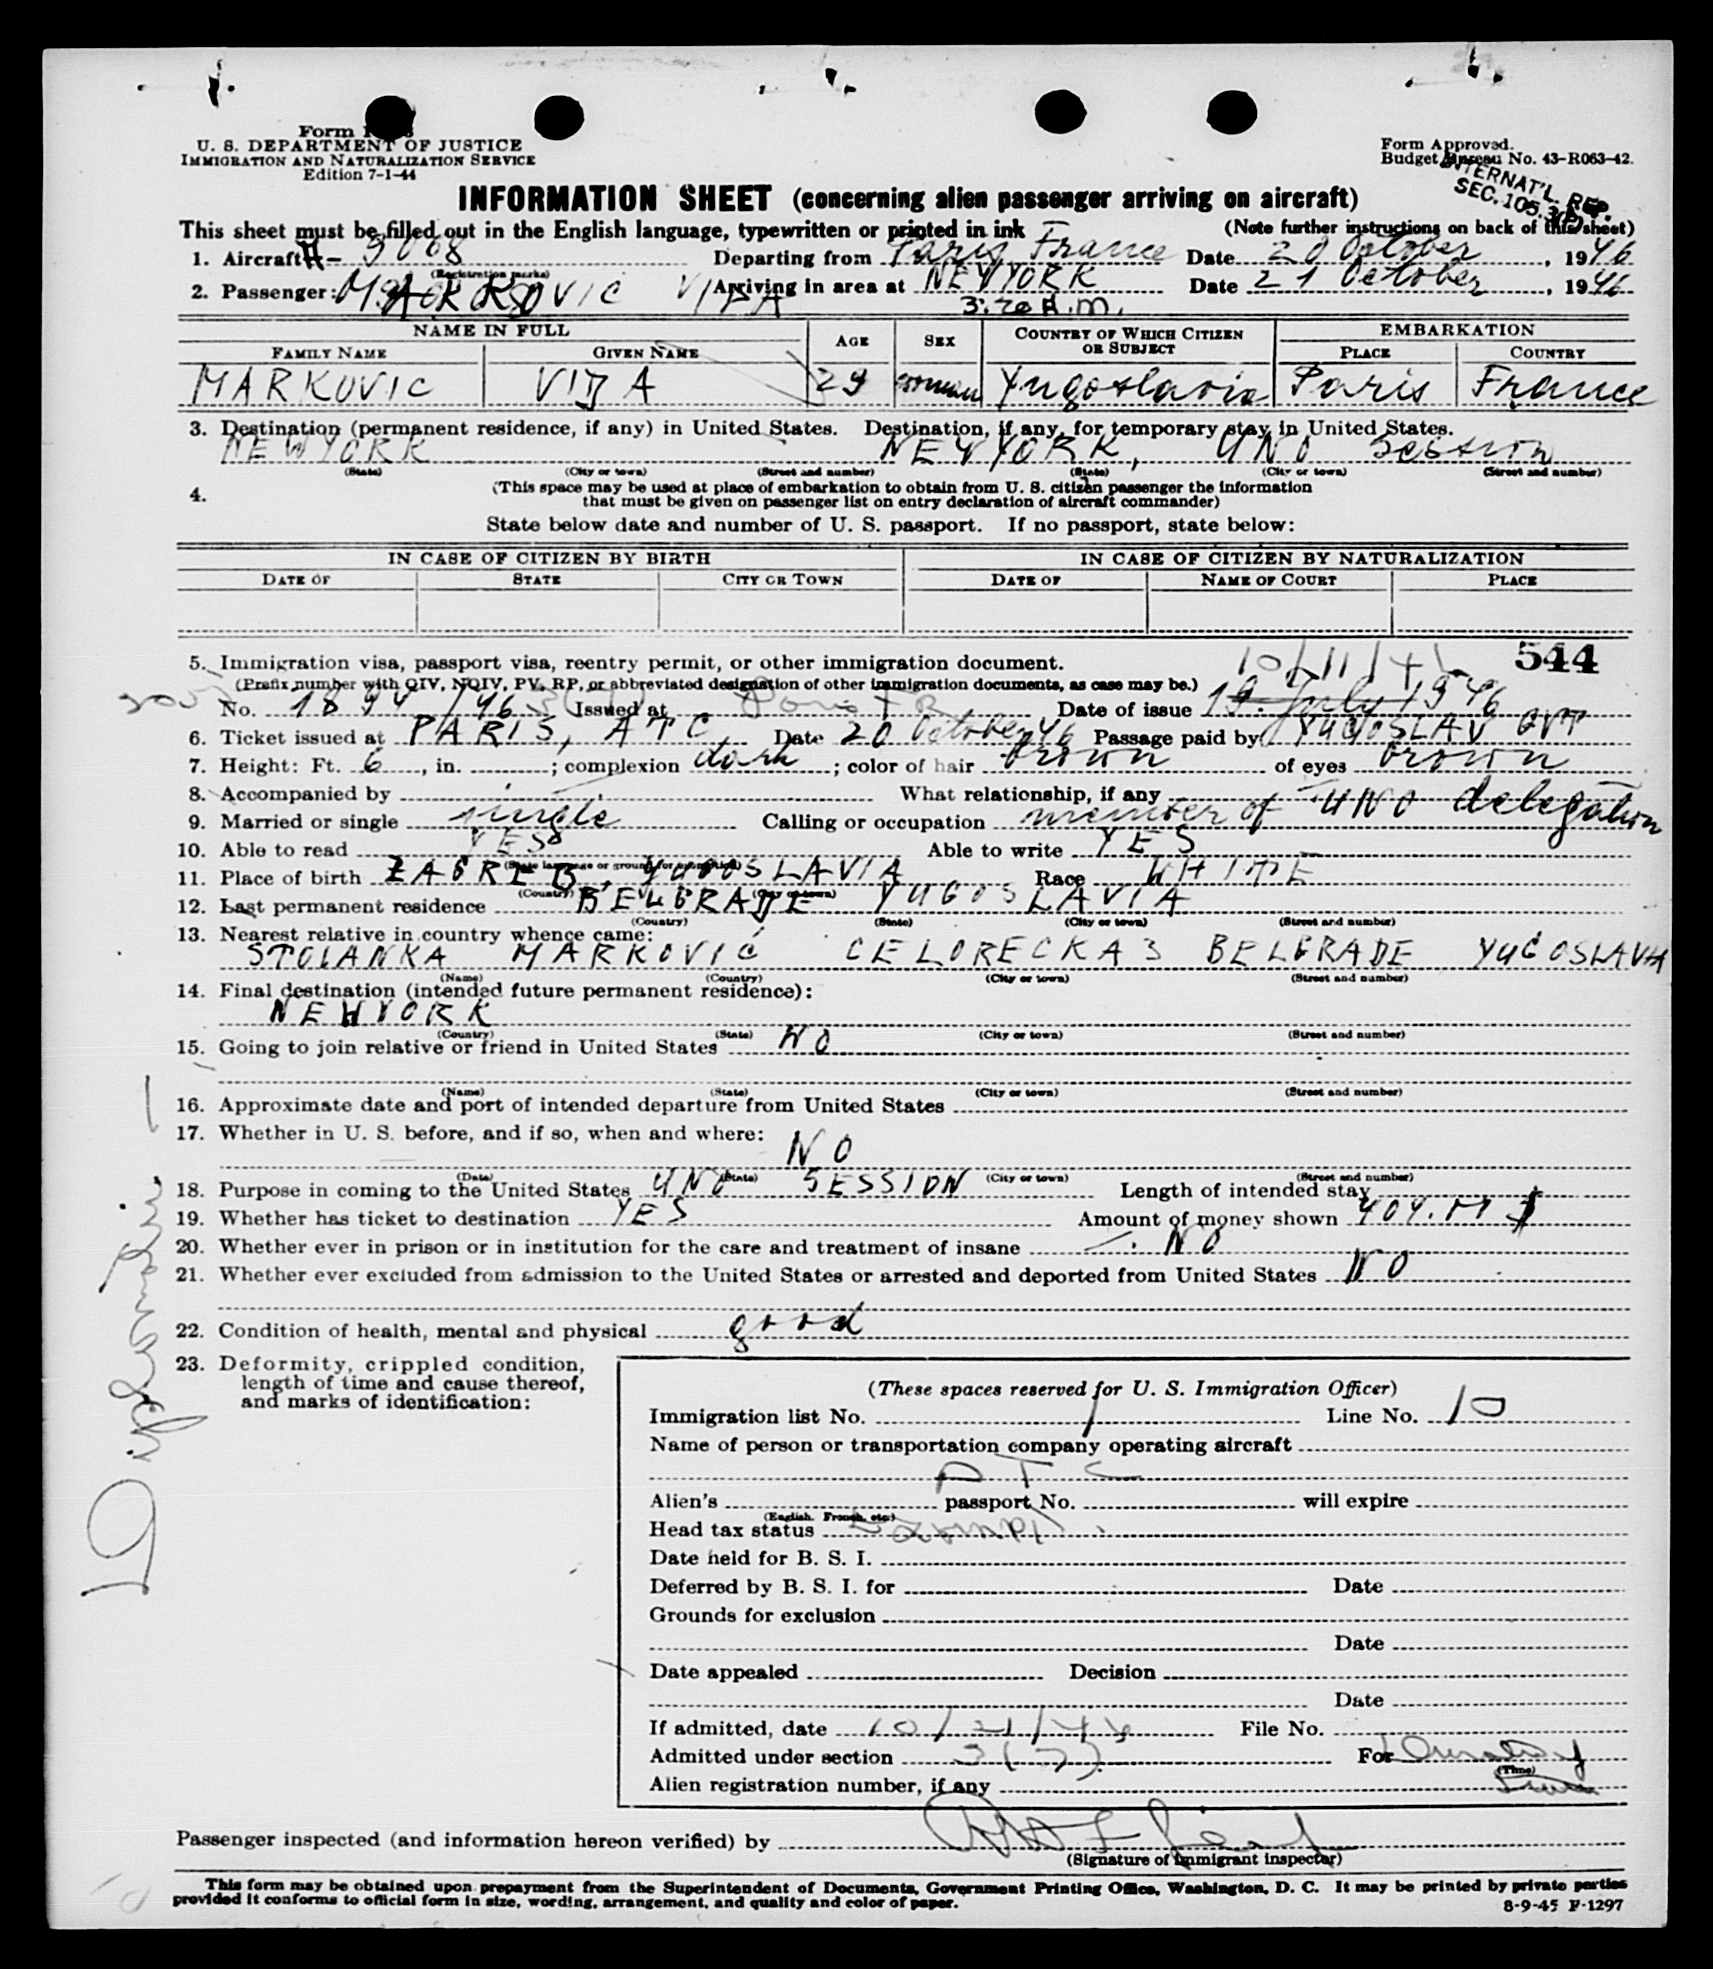 Form
U. S. DEPARTMENT OF JUSTICE
IMMIGRATION AND NATURALIZATION SERVICE
Edition 7-1-44
Form Approved.
Budget Bureau No. 43-R063-42.
INTERNAT'L. REP.
SEC. 105.3(P)
INFORMATION SHEET (concerning alien passenger arriving on aircraft)
This sheet must be filled out in the English language, typewritten or printed in ink (Note further instructions on back of this sheet)
1. Aircraft 9068 Departing from Paris France Date 20 October, 1946
(Registration marks)
2. Passenger: MARKOVIC VIDA Arriving in area at NEW YORK Date 21 October, 1946
3:20 A.M.
NAME IN FULL AGE SEX COUNTRY OF WHICH CITIZEN OR SUBJECT EMBARKATION
FAMILY NAME GIVEN NAME PLACE COUNTRY
MARKOVIC VIDA 29 woman Yugoslavia Paris France
3. Destination (permanent residence, if any) in United States. Destination, if any, for temporary stay in United States.
NEW YORK NEW YORK, UNO session
(State) (City or town) (Street and number) (State) (City or town) (Street and number)
4. (This space may be used at place of embarkation to obtain from U. S. citizen passenger the information
that must be given on passenger list on entry declaration of aircraft commander)
State below date and number of U. S. passport. If no passport, state below:
IN CASE OF CITIZEN BY BIRTH IN CASE OF CITIZEN BY NATURALIZATION
DATE OF STATE CITY OR TOWN DATE OF NAME OF COURT PLACE
5. Immigration visa, passport visa, reentry permit, or other immigration document. 10/11/46 544
(Prefix number with QIV, NQIV, PV, RP, or abbreviated designation of other immigration documents, as case may be.)
No. 1894/46 Issued at Paris FR Date of issue 19 July 1946
6. Ticket issued at PARIS, ATC Date 20 October 46 Passage paid by YUGOSLAV GVT
7. Height: Ft. 6, in. ; complexion dark ; color of hair brown of eyes brown
8. Accompanied by What relationship, if any
9. Married or single single Calling or occupation member of UNO delegation
10. Able to read YES Able to write YES
(State language or ground for exemption)
11. Place of birth ZAGREB, YUGOSLAVIA Race WHITE
(Country) (City or town)
12. Last permanent residence BELGRADE YUGOSLAVIA
(Country) (State) (City or town) (Street and number)
13. Nearest relative in country whence came:
STOIANKA MARKOVIĆ CELORECKA 3 BELGRADE YUGOSLAVIA
(Name) (Country) (City or town) (Street and number)
14. Final destination (intended future permanent residence):
NEW YORK
(Country) (State) (City or town) (Street and number)
15. Going to join relative or friend in United States NO
(Name) (State) (City or town) (Street and number)
16. Approximate date and port of intended departure from United States
17. Whether in U. S. before, and if so, when and where:
NO
(Date) (State) (City or town) (Street and number)
18. Purpose in coming to the United States UNO SESSION Length of intended stay
19. Whether has ticket to destination YES Amount of money shown $
20. Whether ever in prison or in institution for the care and treatment of insane NO
21. Whether ever excluded from admission to the United States or arrested and deported from United States NO
22. Condition of health, mental and physical good
23. Deformity, crippled condition,
length of time and cause thereof,
and marks of identification:
(These spaces reserved for U. S. Immigration Officer)
Immigration list No. 1 Line No. 10
Name of person or transportation company operating aircraft
ATC
Alien's passport No. will expire
(English, French, etc.)
Head tax status
Date held for B. S. I.
Deferred by B. S. I. for Date
Grounds for exclusion
Date
Date appealed Decision
Date
If admitted, date 10/21/46 File No.
Admitted under section 3(7) For
(Time)
Alien registration number, if any
Passenger inspected (and information hereon verified) by
(Signature of immigrant inspector)
This form may be obtained upon prepayment from the Superintendent of Documents, Government Printing Office, Washington, D. C. It may be printed by private parties
provided it conforms to official form in size, wording, arrangement, and quality and color of paper.
8-9-45 F-1297